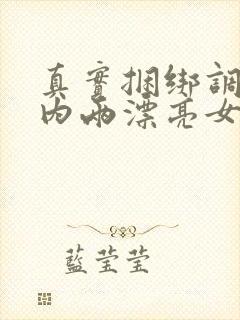 真實捆绑調
内兩漂亮女
藍莹莹